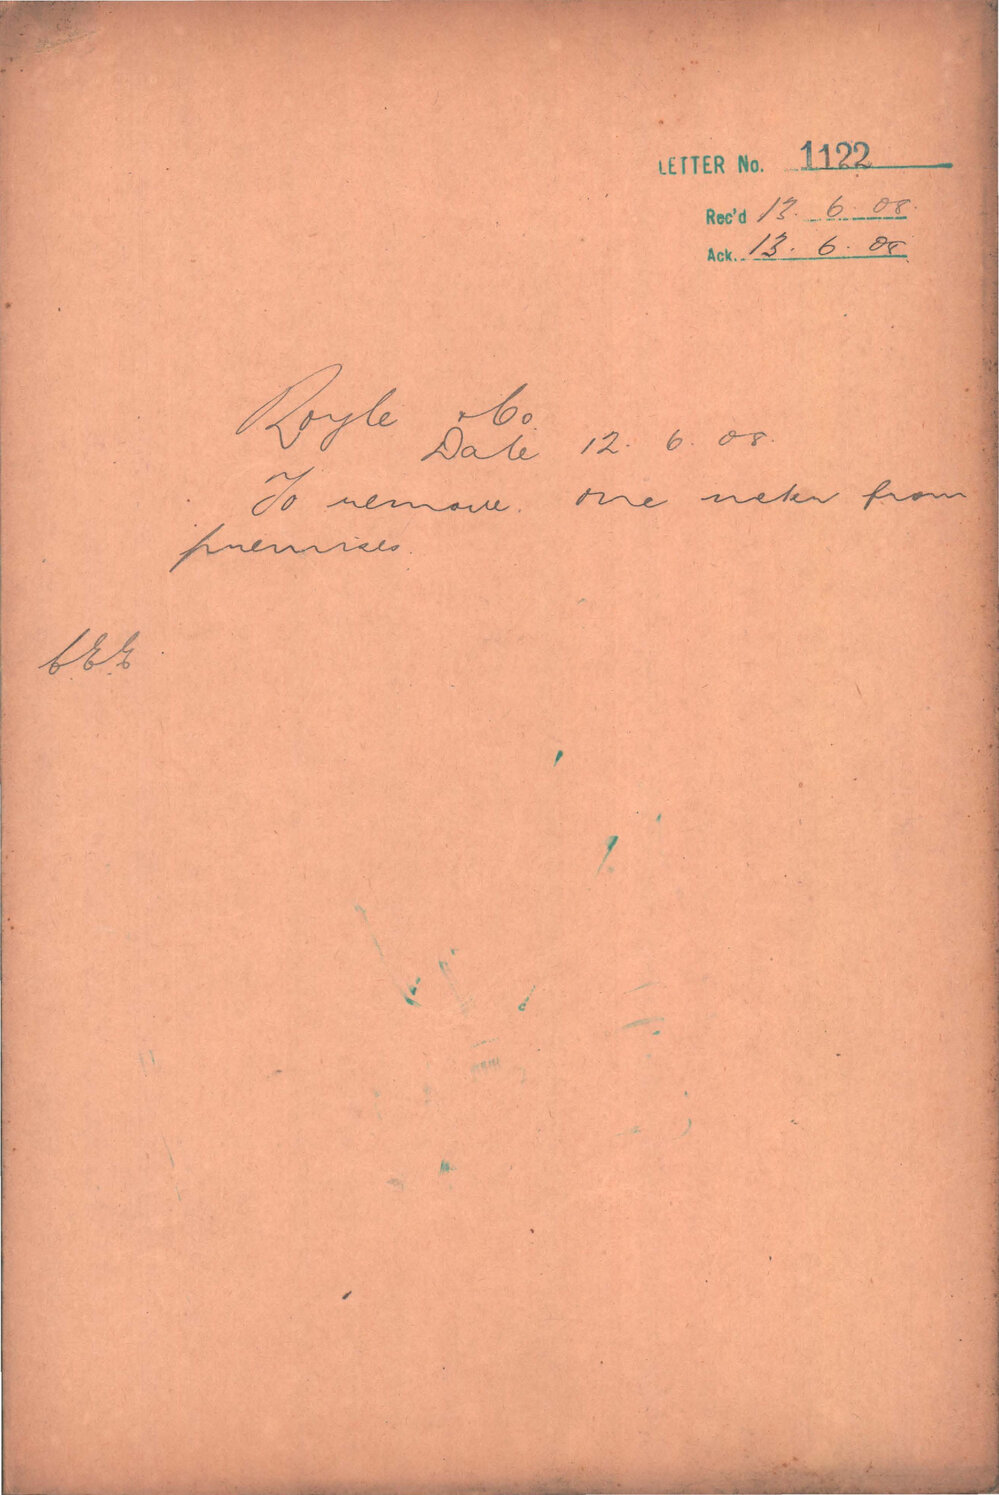 LETTER No. 1122
Rec'd 13. 6. 08.
Ack. 13. 6. 08
Royle & Co.
Date 12. 6. 08.
To remove. one meter from
premises.
CEE